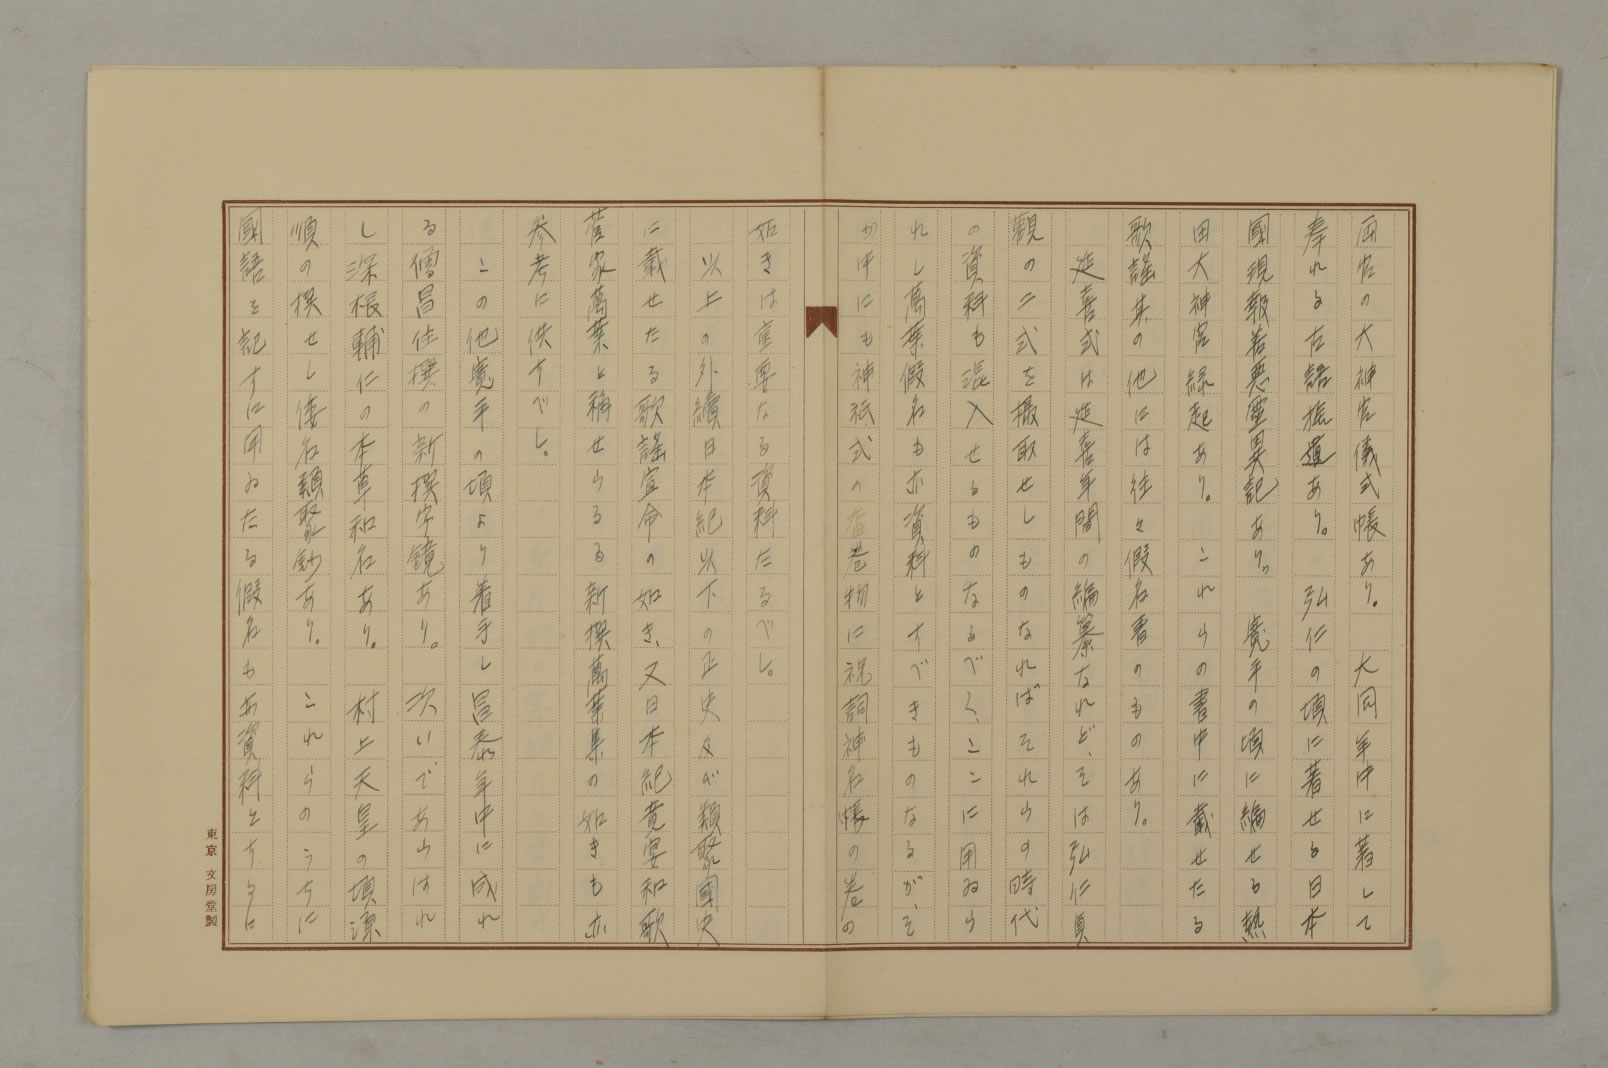 両宮の大神宮儀式帳あり。大同年中に著して
奉れる古語拾遺あり。弘仁の頃に著せる日本
國現報善悪靈異記あり。寛平の頃に編せる熱
田大神宮縁起あり。これらの書中に載せたる
歌謡其の他には往々假名書のものあり。
延喜式は延喜年間の編纂なれど、そは弘仁貞
觀の二式を攝取せしものなればそれらの時代
の資料も混入せるものなるべく、ここに用ゐら
れし萬葉假名も亦資料とすべきものなるが、そ
が中にも神祇式の巻物に祝詞神名帳の巻の
如きは重要なる資料たるべし。
以上の外續日本紀以下の正史及び類聚國史
に載せたる歌謡宣命の如き、又日本紀竟宴和歌
菅家萬葉と稱せらるる新撰萬葉集の如きも亦
参考に供すべし。
この他寛平の頃より着手し昌泰年中に成れ
る僧昌住撰の新撰字鏡あり。次いであらはれ
し深根輔仁の本草和名あり。村上天皇の頃源
順の撰せし倭名類聚鈔あり。これらのうちに
國語を記すに用ゐたる假名もあ資料とするに
東京 文房堂製